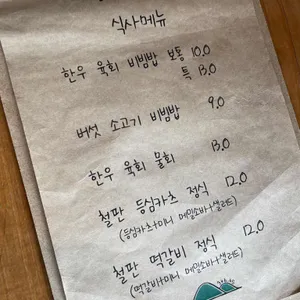 식사메뉴
한우 육회 비빔밥 보통 10.0
특 13.0
버섯 소고기 비빔밥 9.0
한우 육회 물회 13.0
철판 등심카츠 정식 12.0
(등심카츠+미니 메밀소바+샐러드)
철판 떡갈비 정식 12.0
(떡갈비+미니 메밀소바+샐러드)